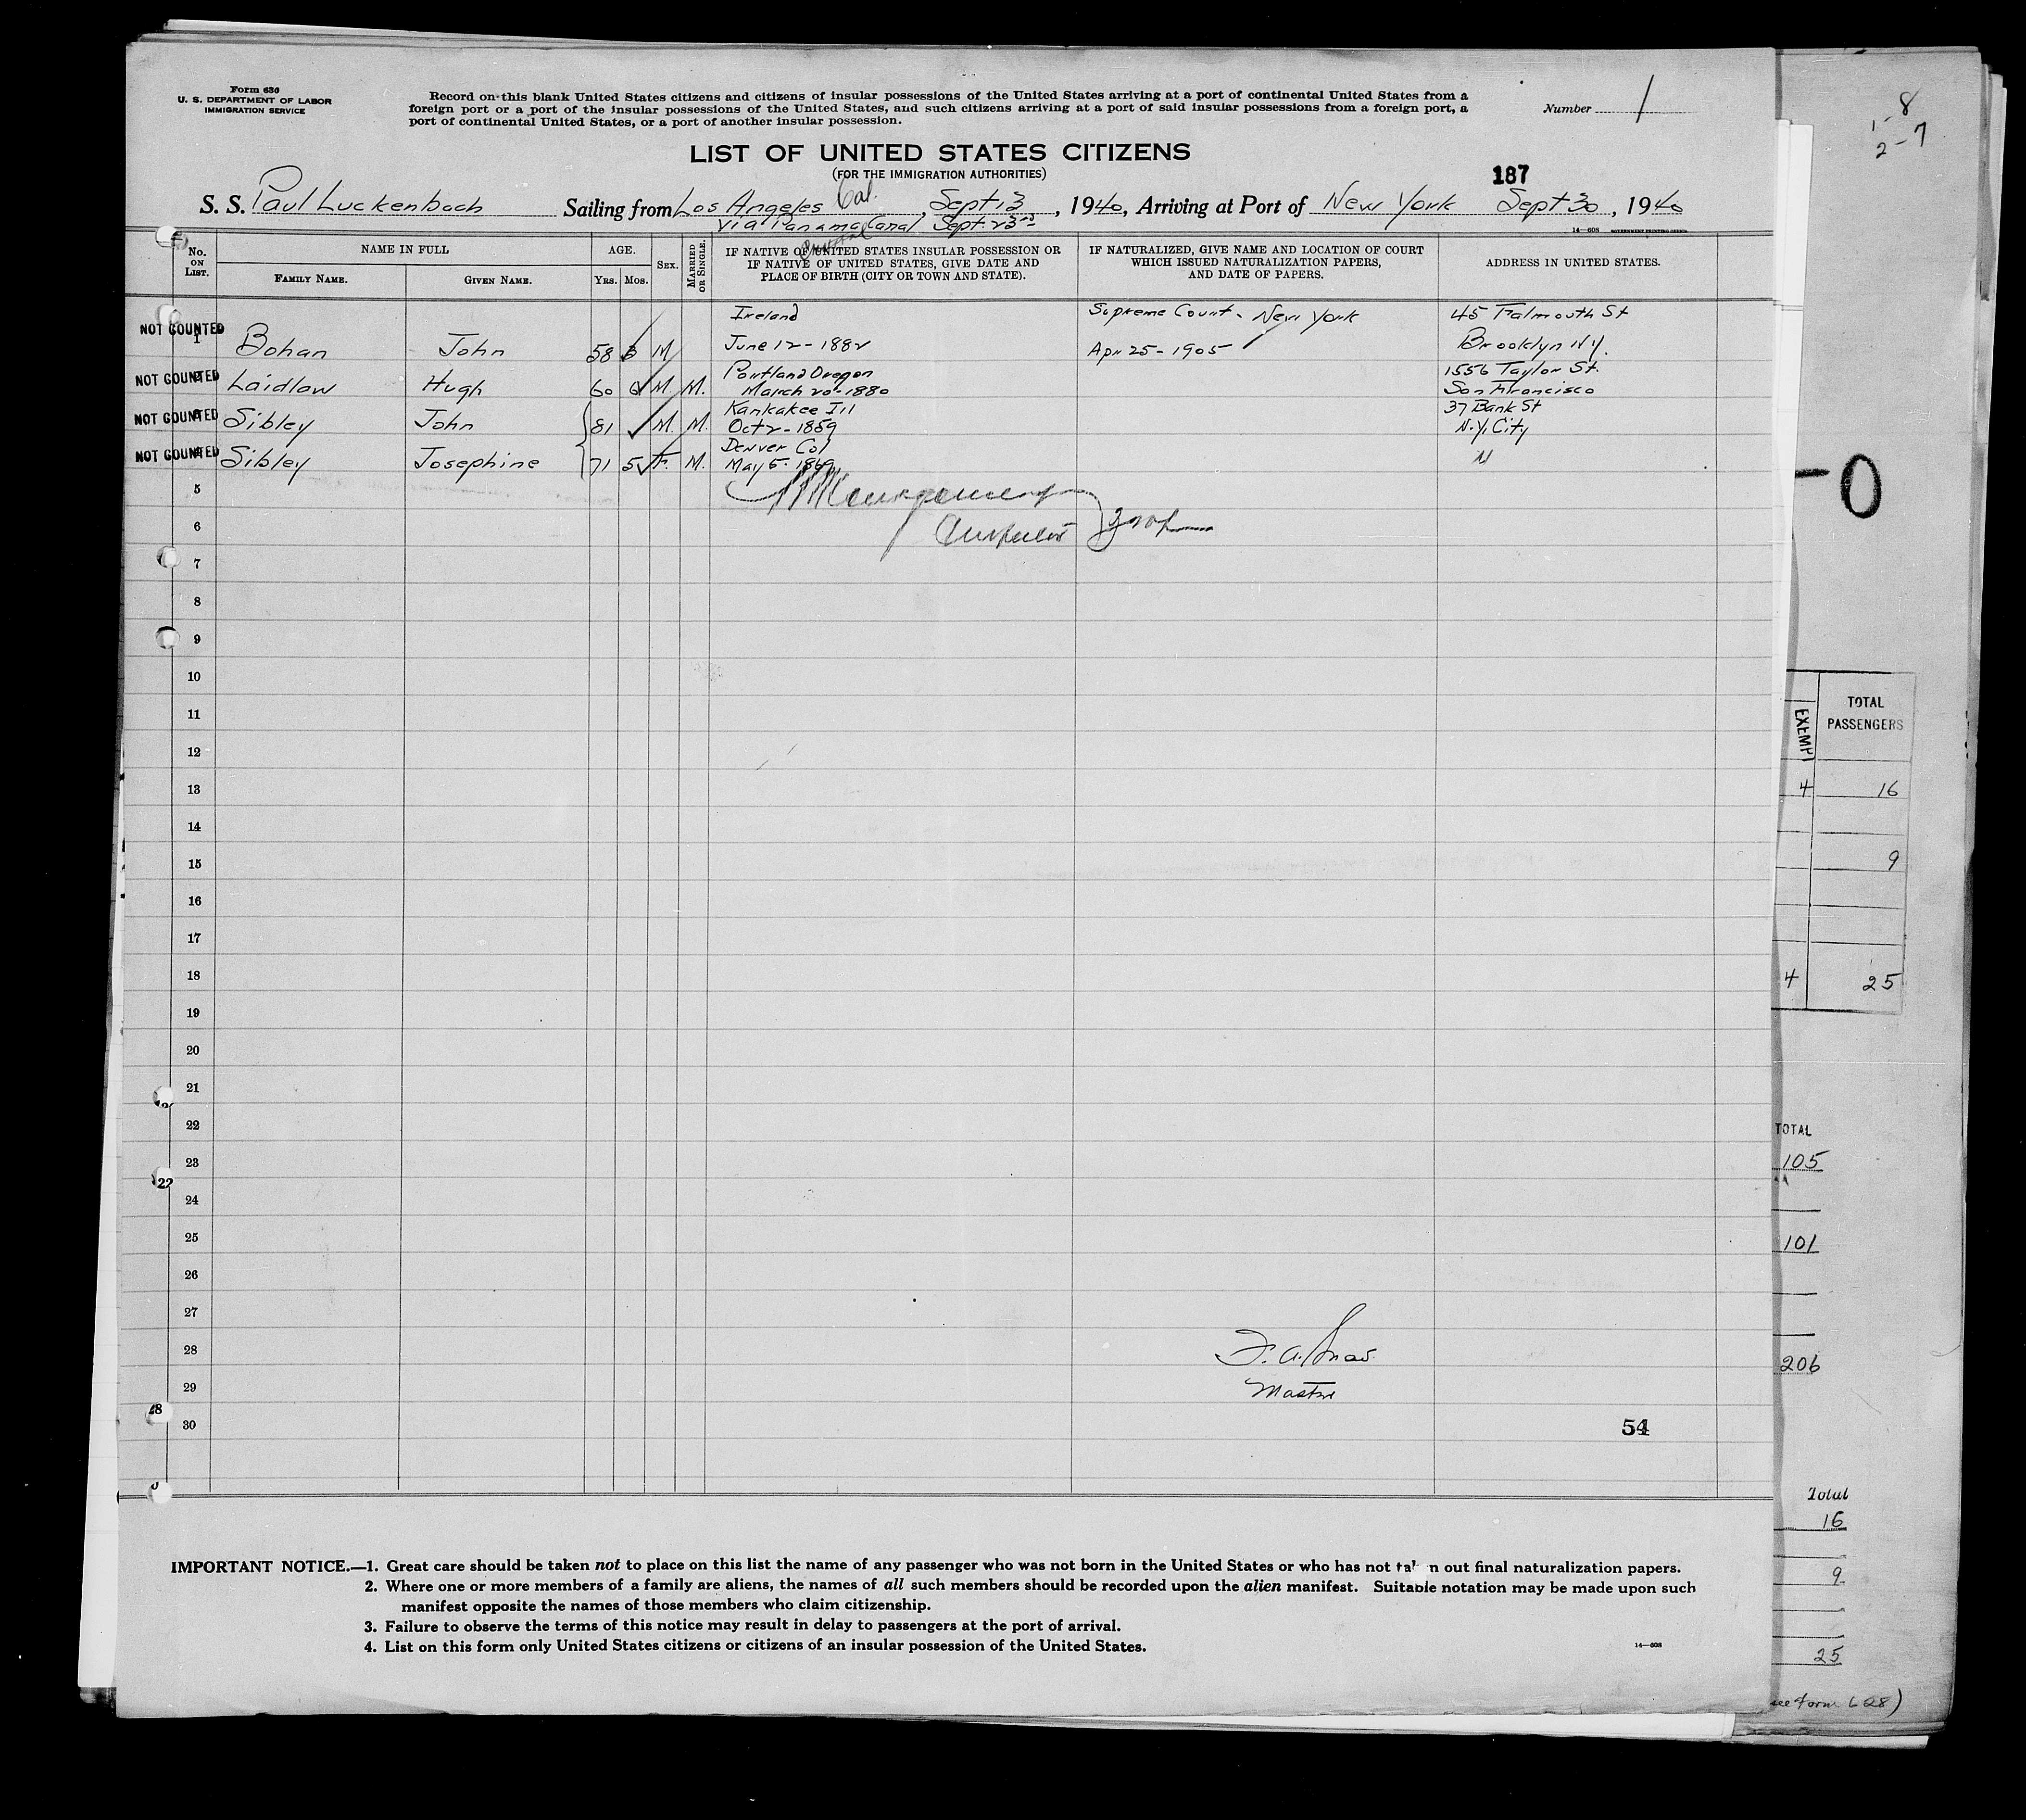 Form 630
U. S. DEPARTMENT OF LABOR
IMMIGRATION SERVICE
Record on this blank United States citizens and citizens of insular possessions of the United States arriving at a port of continental United States from a
foreign port or a port of the insular possessions of the United States, and such citizens arriving at a port of said insular possessions from a foreign port, a
port of continental United States, or a port of another insular possession.
Number 1
1-8
2-7
LIST OF UNITED STATES CITIZENS
(FOR THE IMMIGRATION AUTHORITIES)
187
S. S. Paul Luckenbach Sailing from Los Angeles Cal., Sept 13, 1940, Arriving at Port of New York Sept 30, 1940
Via Panama Canal Sept. 23rd
14—608 GOVERNMENT PRINTING OFFICE
No. ON LIST.
NAME IN FULL
FAMILY NAME.
GIVEN NAME.
AGE.
YRS. MOS.
SEX.
MARRIED OR SINGLE.
IF NATIVE OF UNITED STATES INSULAR POSSESSION OR
IF NATIVE OF UNITED STATES, GIVE DATE AND
PLACE OF BIRTH (CITY OR TOWN AND STATE).
IF NATURALIZED, GIVE NAME AND LOCATION OF COURT
WHICH ISSUED NATURALIZATION PAPERS,
AND DATE OF PAPERS.
ADDRESS IN UNITED STATES.
Ireland Supreme Court - New York 45 Falmouth St
NOT COUNTED 1 Bohan John 58 3 M June 12 - 1882 Apr 25 - 1905 Brooklyn N.Y.
Portland Oregon 1556 Taylor St.
NOT COUNTED Laidlaw Hugh 60 6 M M. March 20 - 1880 San Francisco
Kankakee Ill 37 Bank St
NOT COUNTED Sibley John 81 M. M. Oct 2 - 1859 N.Y. City
Denver Col
NOT COUNTED 4 Sibley Josephine 71 5 F. M. May 5 - 1869 "
5
6
7
8
9
10
11
12
13
14
15
16
17
18
19
20
21
22
23
24
25
26
27
28
29
Master
30
54
O
EXEMPT
TOTAL
PASSENGERS
4 16
9
4 25
TOTAL
105
101
206
Total
16
9
25
see form 628)
22
28
IMPORTANT NOTICE.—1. Great care should be taken not to place on this list the name of any passenger who was not born in the United States or who has not tak n out final naturalization papers.
2. Where one or more members of a family are aliens, the names of all such members should be recorded upon the alien manifest. Suitable notation may be made upon such
manifest opposite the names of those members who claim citizenship.
3. Failure to observe the terms of this notice may result in delay to passengers at the port of arrival.
4. List on this form only United States citizens or citizens of an insular possession of the United States.
14—608